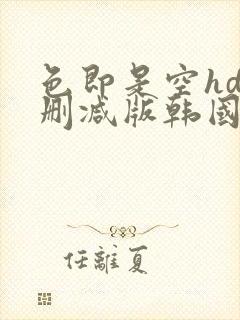 色即是空hd
删减版韩国
任離夏